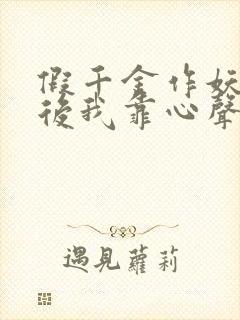 假千金作妖
後我靠心聲
遇見蘿莉